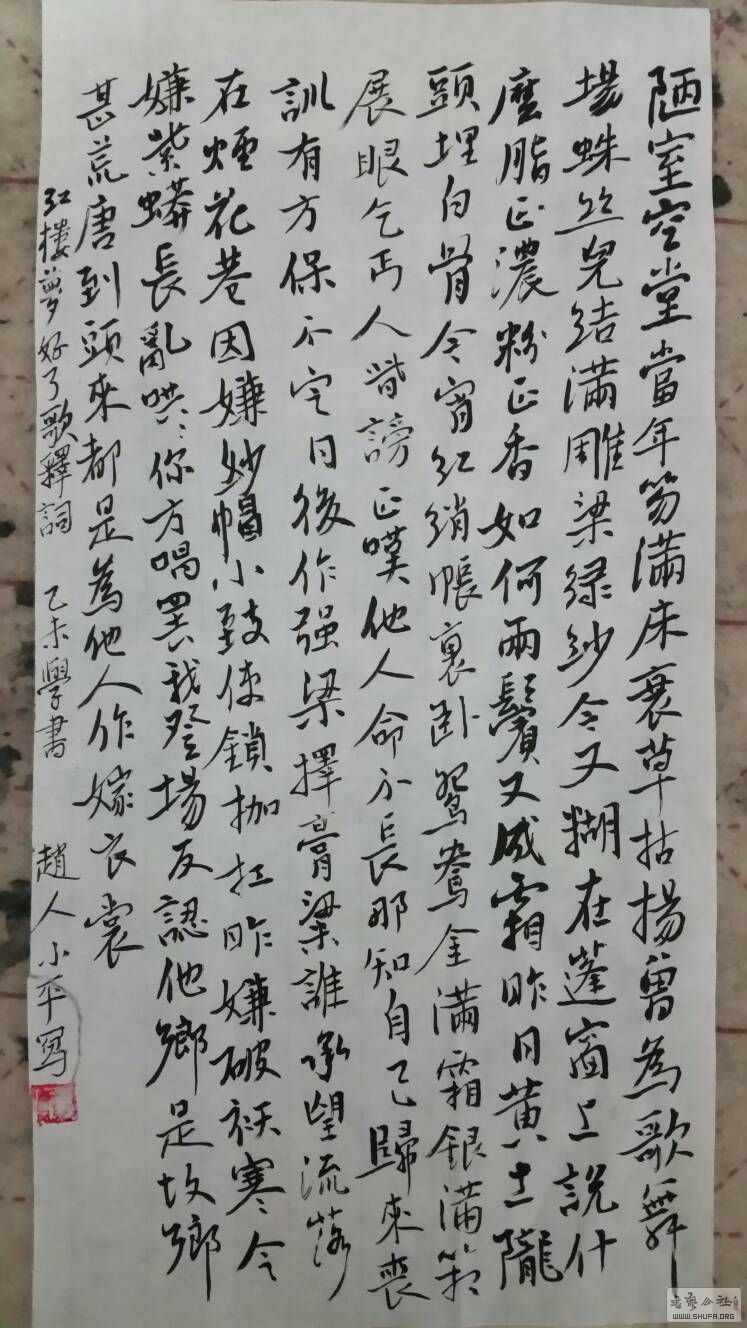 陋室空堂當年笏滿床衰草枯揚曾為歌舞
場蛛丝兒结滿雕梁绿紗今又糊在蓬窗上說什
麼脂正濃粉正香如何兩鬢又成霜昨日黄土隴
頭埋白骨今宵红绡帳裏卧鸳鸯金滿霜銀滿箱
展眼乞丐人皆謗正嘆他人命不長那知自己歸來喪
訓有方保不定日後作强梁擇膏粱誰承望流落
在煙花巷因嫌紗帽小致使鎖枷扛昨嫌破袄寒今
嫌紫蟒長亂哄哄你方唱罢我登場反認他鄉是故鄉
甚荒唐到頭來都是為他人作嫁衣裳
红樓夢好了歌釋詞 乙未學書 趙人小平写
WWW.SHUFA.ORG